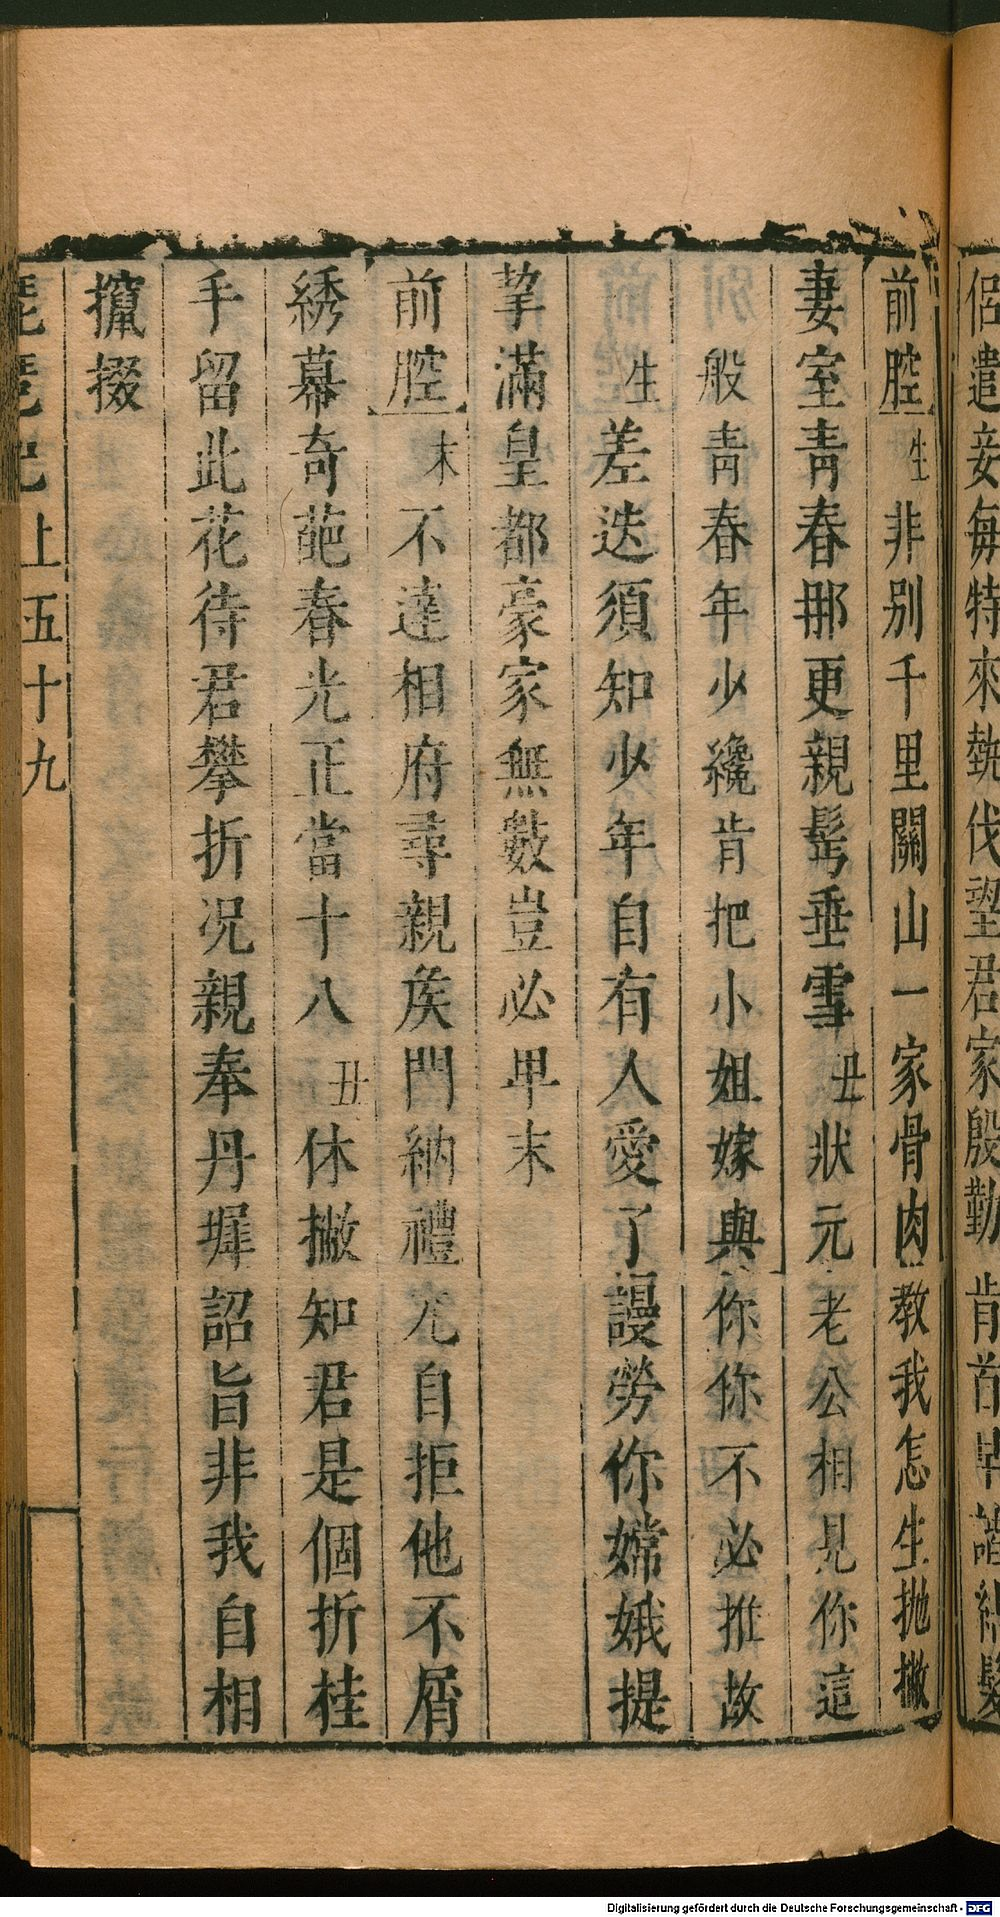 侶遣妾每特來執伐望君家殷勤肯首早諧結髮
前腔生非别千里關山一家骨肉教我怎生抛撇
妻室青春那更親髩垂雪丑狀元老公相見你這
般青春年少纔肯把小姐嫁與你你不必推故
生差迭須知少年自有人愛了謾勞你嫦娥提
挈滿皇都豪家無數豈必卑末
前腔末不達相府尋親矦門納禮兀自拒他不屑
綉幕奇葩春光正當十八丑休撇知君是個折桂
手留此花待君攀折况親奉丹墀詔旨非我自相
攛掇
琵琶記上五十九
Digitalisierung gefördert durch die Deutsche Forschungsgemeinschaft - DFG